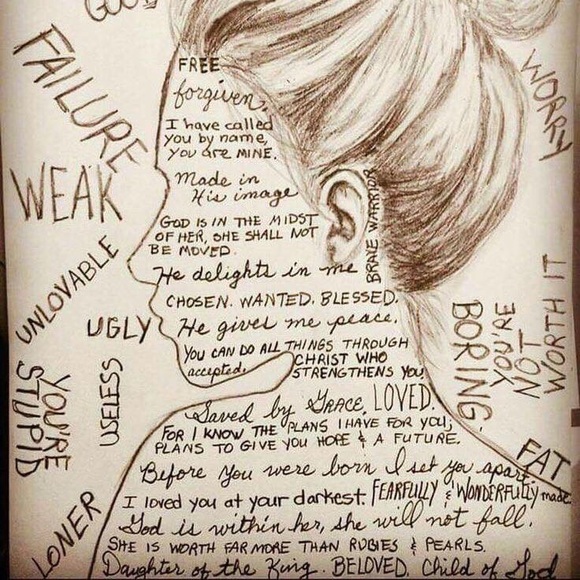 GOOD
FAILURE
WEAK
UNLOVABLE
UGLY
USELESS
YOU'RE
STUPID
LONER
FREE
forgiven.
I have called
you by name,
You are MINE.
Made in
His image
GOD IS IN THE MIDST
OF HER, SHE SHALL NOT
BE MOVED.
He delights in me
CHOSEN. WANTED. BLESSED.
He gives me peace.
YOU CAN DO ALL THINGS THROUGH
CHRIST WHO
STRENGTHENS YOU
accepted.
Saved by GRACE. LOVED.
FOR I KNOW THE PLANS I HAVE FOR YOU,
PLANS TO GIVE YOU HOPE & A FUTURE.
Before you were born I set you apart
I loved you at your darkest. FEARFULLY & WONDERFULLY made
God is within her, she will not fall.
SHE IS WORTH FAR MORE THAN RUBIES & PEARLS.
Daughter of the King. BELOVED. Child of God
BRAVE WARRIOR
WORRY
BORING.
YOU'RE
NOT
WORTH IT
FAT